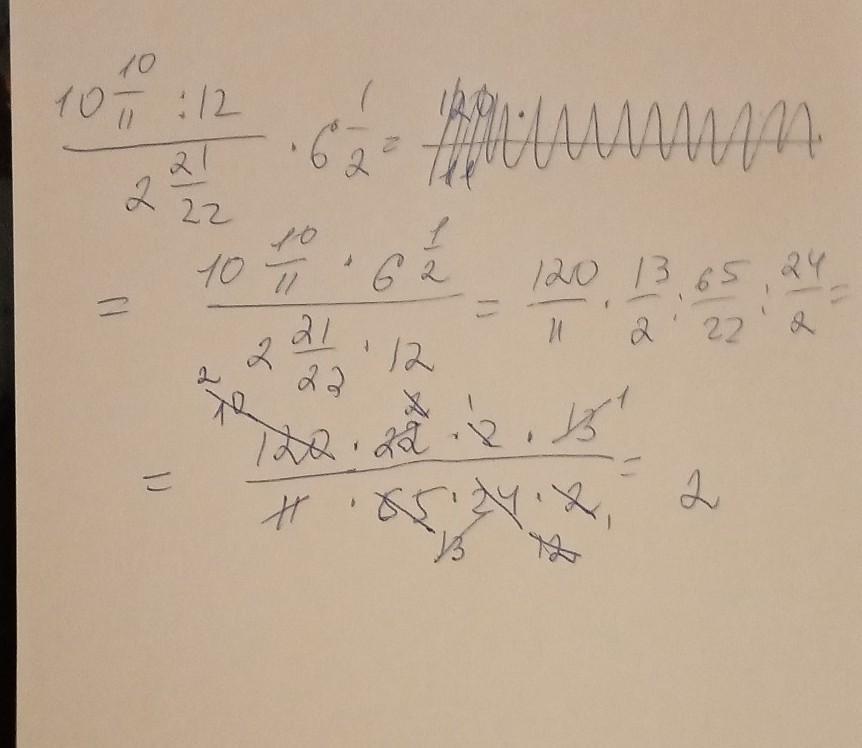 (10 10/11 : 12) / (2 21/22) · 6 1/2 =
= (10 10/11 · 6 1/2) / (2 21/22 · 12) = 120/11 · 13/2 : 65/22 : 24/2 =
2 10 2 1 1
= (120 · 22 · 2 · 13) / (11 · 65 · 24 · 2) = 2
13 12 1